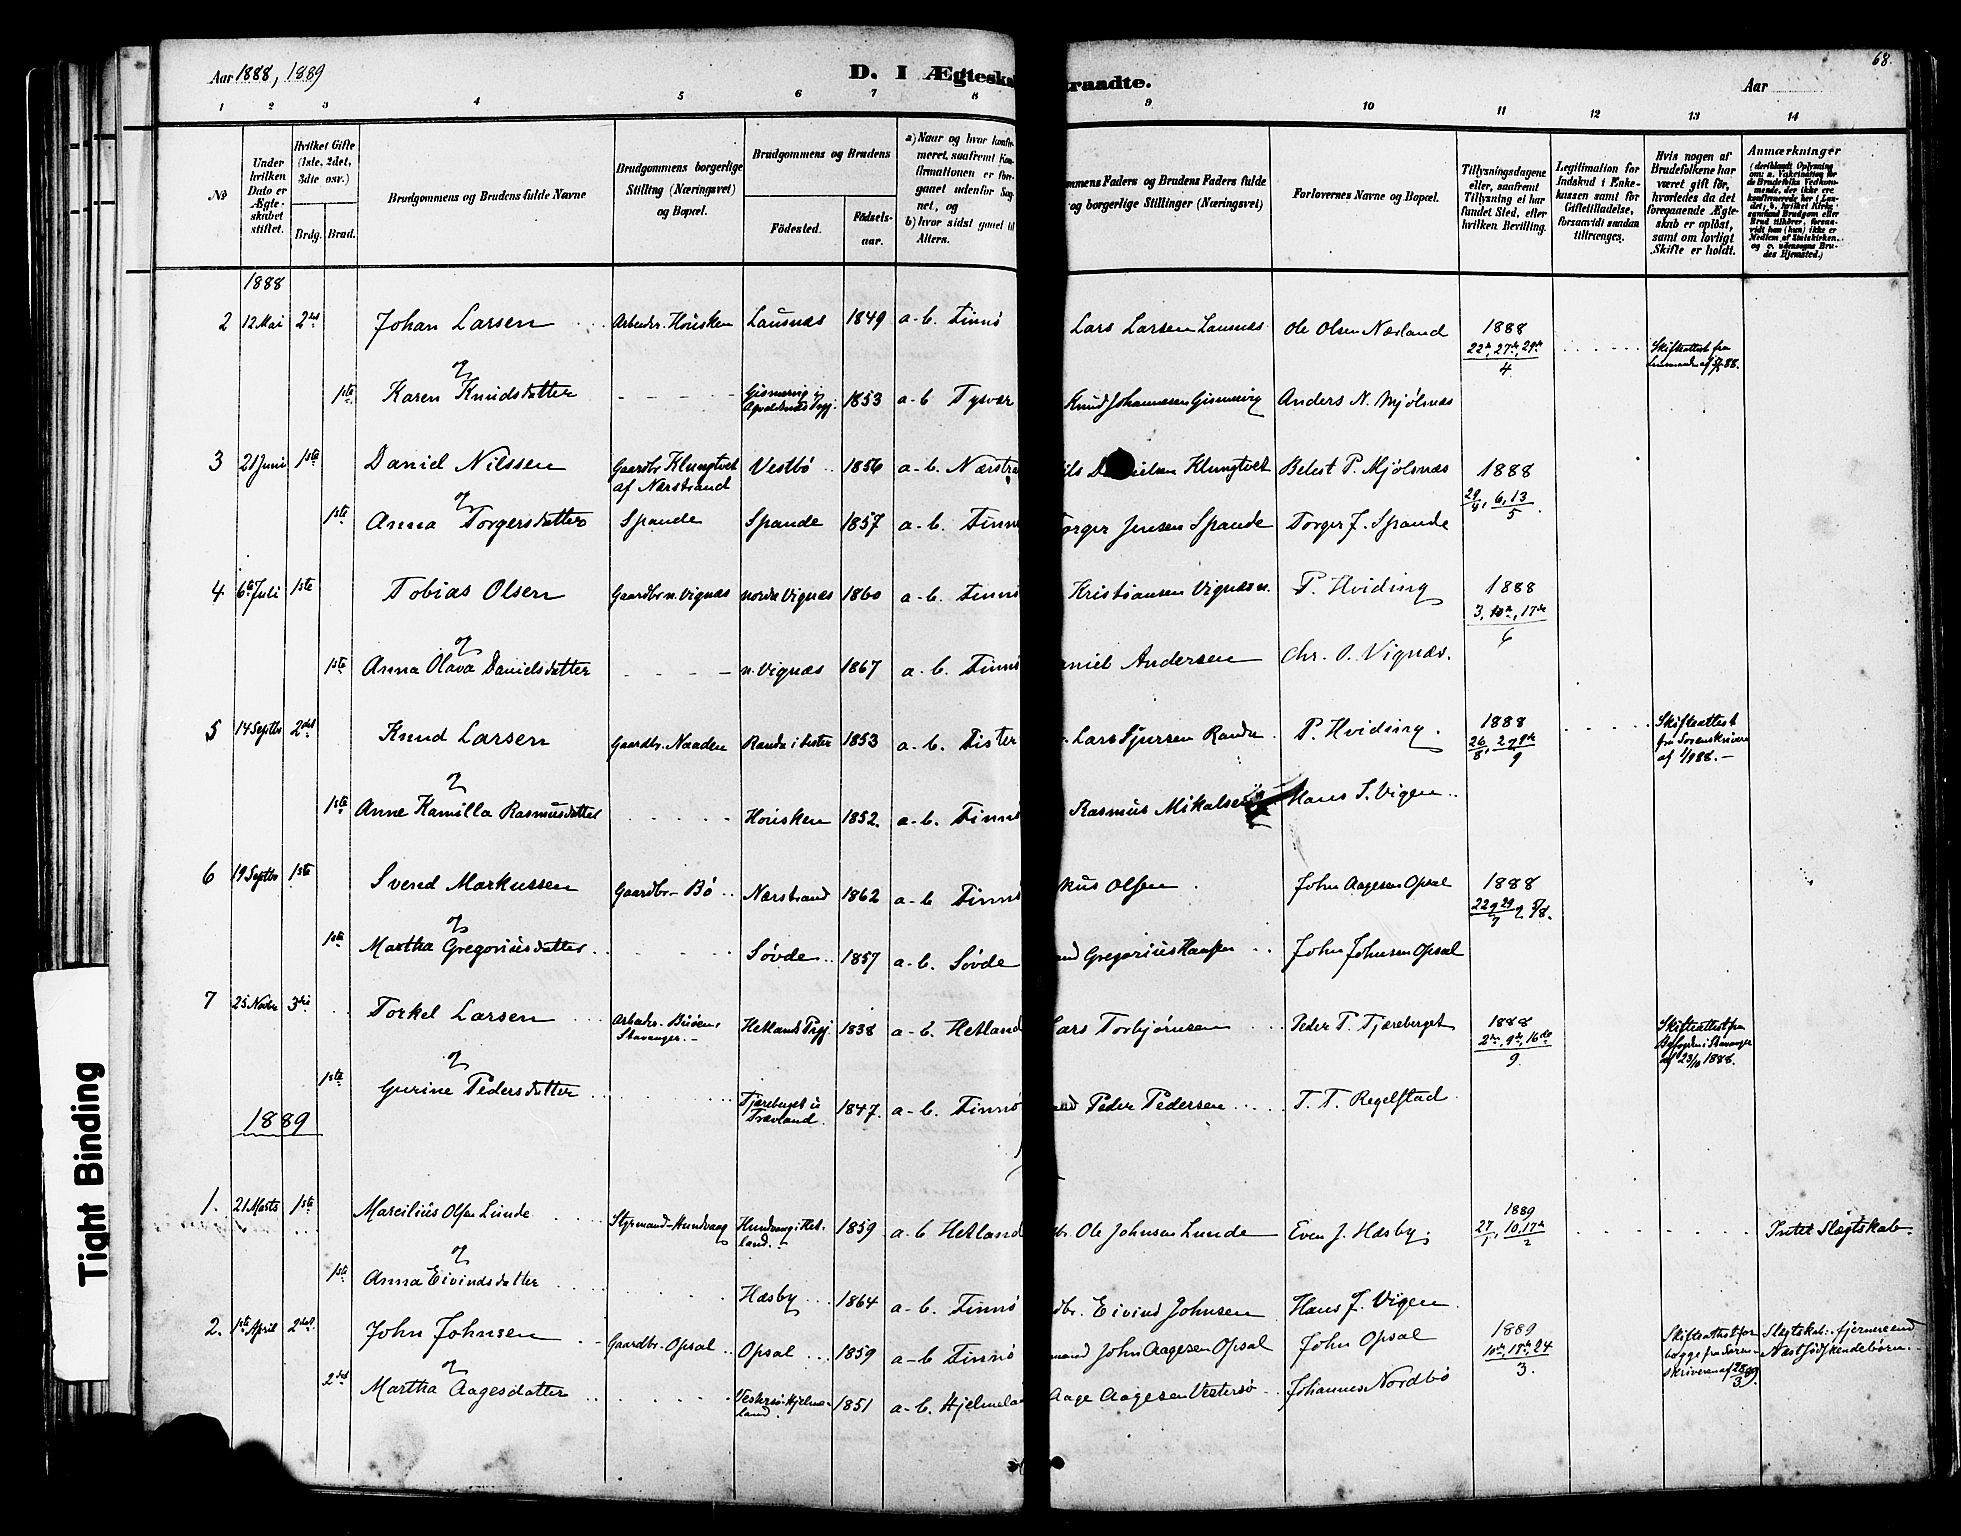 Aar 1888, 1889
D. I Ægteska
traadte.
Aar
68.
1 2 3 4 5 6 7 8 9 10 11 12 13 14
№
Under hvilken Dato er Ægteskabet stiftet.
Hvilket Gifte (1ste, 2det, 3die osv.)
Brdg. Brud.
Brudgommens og Brudens fulde Navne
Brudgommens borgerlige Stilling (Næringsvei) og Bopæl.
Brudgommens og Brudens
Fødested.
Fødselsaar.
a) Naar og hvor konfirmeret, saafremt Konfirmationen er foregaaet udenfor Sognet, og
b) hvor sidst gaaet til Alters.
mmens Faders og Brudens Faders fulde
og borgerlige Stillinger (Næringsvei)
Forlovernes Navne og Bopæl.
Tillysningsdagene eller, saafremt Tillysning ei har fundet Sted, efter hvilken Bevilling.
Legitimation for Indskud i Enkekassen samt for Giftetilladelse, forsaavidt saadan tiltrænges.
Hvis nogen af Brudefolkene har været gift før, hvorledes da det foregaaende Ægteskab er opløst, samt om lovligt Skifte er holdt.
Anmærkninger
1888
2 12 Mai 2det Johan Larsen Arbeider. Housken Lausnæs 1849 a-b. Finnø Lars Larsen Lausnæs Ole Olsen Nærland 1888 22de, 27de, 29de/4 Skifteattest fra
og
1ste Karen Knudsdatter Gismervig i 1853 a-b Tysvær Knud Johannesen Gismervig Anders N. Mjølnæs
3 21 Juni 1ste Daniel Nilssen Gaardbr Klungtvet af Nærstrand Vestbø 1856 a-b. Nærstra ils Danielsen Klungtvet Belest P. Mjølsnæs 1888 29/4, 6, 13/5
og
1ste Anna Torgersdatter Spande Spande 1857 a-b. Finnø Torger Jensen Spande Torger J. Spande
4 6te Juli 1ste Tobias Olsen Gaardbr n. Vignæs nordre Vignæs 1860 a-b. Finnø Kristiansen Vignæs n. P. Hviding 1888 3, 10de, 17de/6
og
1ste Anna Olava Danielsdatter n. Vignæs 1867 a-b. Finnø aniel Andersen Chr. O. Vignæs.
5 14 Septbr 2det Knud Larsen Gaardbr. Naaden Randa i Fister 1853 a-b. Fister Lars Sjursen Randa P. Hviding. 1888 26/8, 2 9de/9 Skifteattest fra Sorenskriver af 1/9 88. –
og
1ste Anne Kamilla Rasmusdatter Housken 1852. a-b. Finnø Rasmus Mikalsen Hans S. Vigen
6 19 Septbr 1ste Svend Markussen Gaardbr- Bø Nærstrand 1862 a-b Finnø kus Olsen John Aagesen Opsal 1888 22 og 29/7 og 5/8.
og
1ste Martha Gregoriusdatter Søvde 1857 a-b. Søvde and Gregorius Hansen John Johnsen Opsal
7 25 Novbr 3die Torkel Larsen Arbeider- Buøen, Stavanger. – Hetlands Prgj. 1838 a-b. Hetland Lars Torbjørnsen Peder P. Tjæreberget 1888 2den, 9de, 16de/9. Skifteattest fra Byfogden i Stavanger af 23/10 1888.
og
1ste Gurine Pedersdatter Tjæreberget i 1847. a-b. Finnø and Peder Pedersen T. T. Regelstad
1889
1. 21 Marts 1ste Marcilius Olsen Lunde Styrmand- Hundvaag Hundvaag i Hetland. 1859 a-b Hetland br. Ole Johnsen Lunde Even J. Hæsby. 1889 27/1, 10, 17de/2 Intet Slægtskab.
og
1ste Anna Eivindsdatter Hæsby 1864 a-b. Finnø dbr. Eivind Johnsen Hans J. Vigen
2. 1ste April 2det John Johnsen Gaardbr- Opsal Opsal 1859 a-b Finnø mand John Aagesen Opsal John Opsal 1889 10de, 18de, 24/3. Skifteattest for begge fra Sorenskriveren af 25/3 89. Slægtskab: fjernere end Næstsødskendebørn.
og
2det Martha Aagesdatter Vestersø- Hjelmeland. 1851 a-b. Hjelmela Aage Aagesen Vestersø Johannes Nordbø
Tight Binding